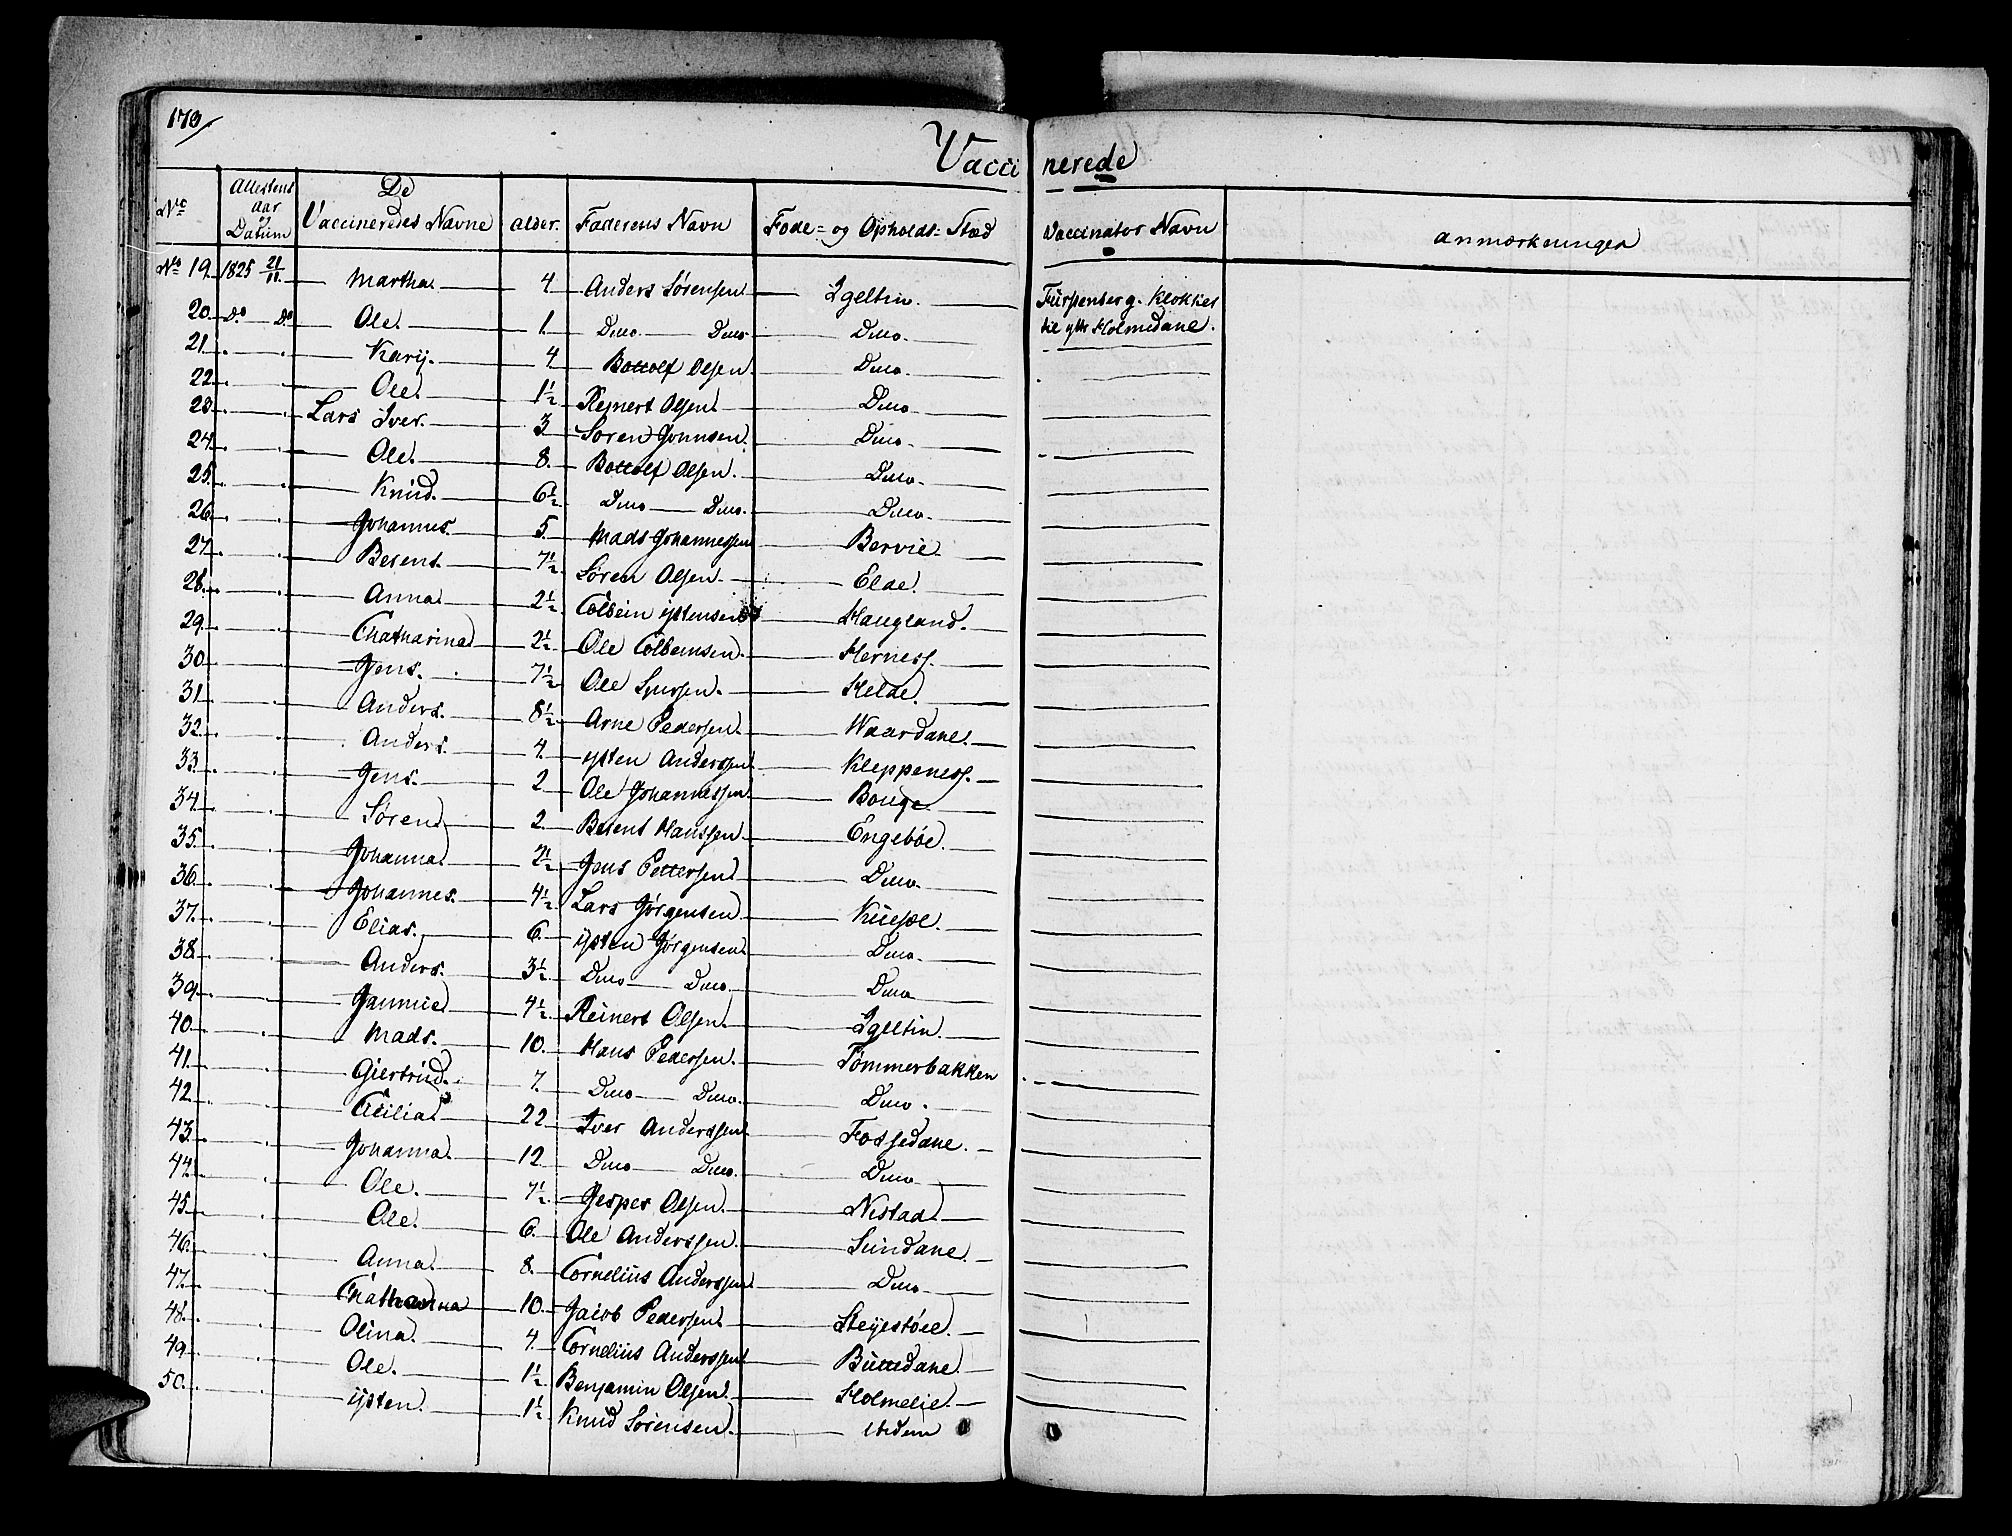 170
Vaccinerede
No | Attestens aar og Datum | De Vaccineredes Navne | alder. | Faderens Navn | Føde= og Opholds= Stæd | Vaccinator Navn | anmærkninger
No 19. 1825 21/11. Martha. 4 Anders Sørensen Igeltin. Fürstenberg. Klokker
20. Do Do Ole. 1. Dito Dito Dito. til ytre Holmedane.
21 Karij. 4 Bottolf Olsen Dito.
22. Ole. 1½ Reinert Olsen Dito
23. Lars Iver. 3 Søren Jonnsen. Dito.
24. Ole. 8. Bottolf Olsen. Dito.
25. Knud. 6½ Dito Dito. Dito.
26. Johannes. 5. Mads Johannessen Bervie.
27 Berent. 7½ Søren Olsen Elde.
28. Anna 2½ Colbein ijstensen Haugland.
29. Chatharina 2½ Ole Colbeinsen. Herness.
30 Jens. 7½ Ole Helde.
31 Anders. 8½ Arne Pedersen. Waardane.
32. Anders. 4. ijsten Anderssen Kleppeness.
33. Jens. 2 Ole Johannessen Bouge
34. Søren 2. Berent Hanssen Engebøe.
35. Johanna 2½ Jens Pettersen Dito.
36. Johannes. 4½ Lars Jørgensen
37. Elias. 6. ijsten Jørgensen Dito.
38. Anders. 3½ Dito Dito. Dito
39. Jannue 4½ Reinert Olsen Igeltin.
40. Mads. 10. Hans Pedersen. Tømmerbakken
41. Giertrud. 7. Dito Dito. Dito.
42. Cicilia. 22 Iver Anderssen Fossedane.
43. Johanna. 12 Dito Dito. Dito
44. Ole. 7½ Jesper Olsen. Nistad.
45. Ole. 6. Ole Anderssen. Sundane.
46. Anna. 8. Cornelius Anderssen Dito
47. Chatharina 10. Jacob Pedersen. Steijestøee.
48. Olina. 4. Cornelius Anderssen Buttedane.
49. Ole. 1½ Benjamin Olsen. Holmelie.
50. ijsten. 1½ Knud Sørensen. Ibidem